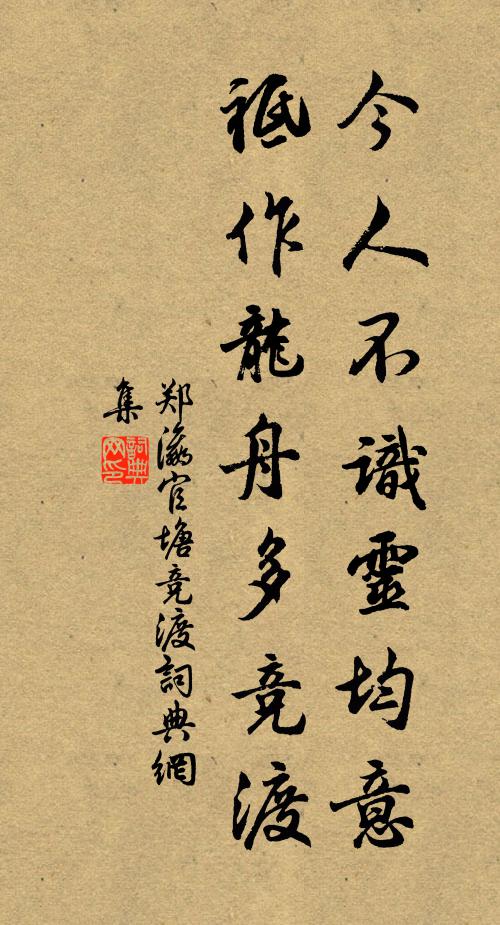 今人不識靈均意
祗作龍舟多竞渡
郑瀛官塘竞渡詞典網
集
詞典
网印